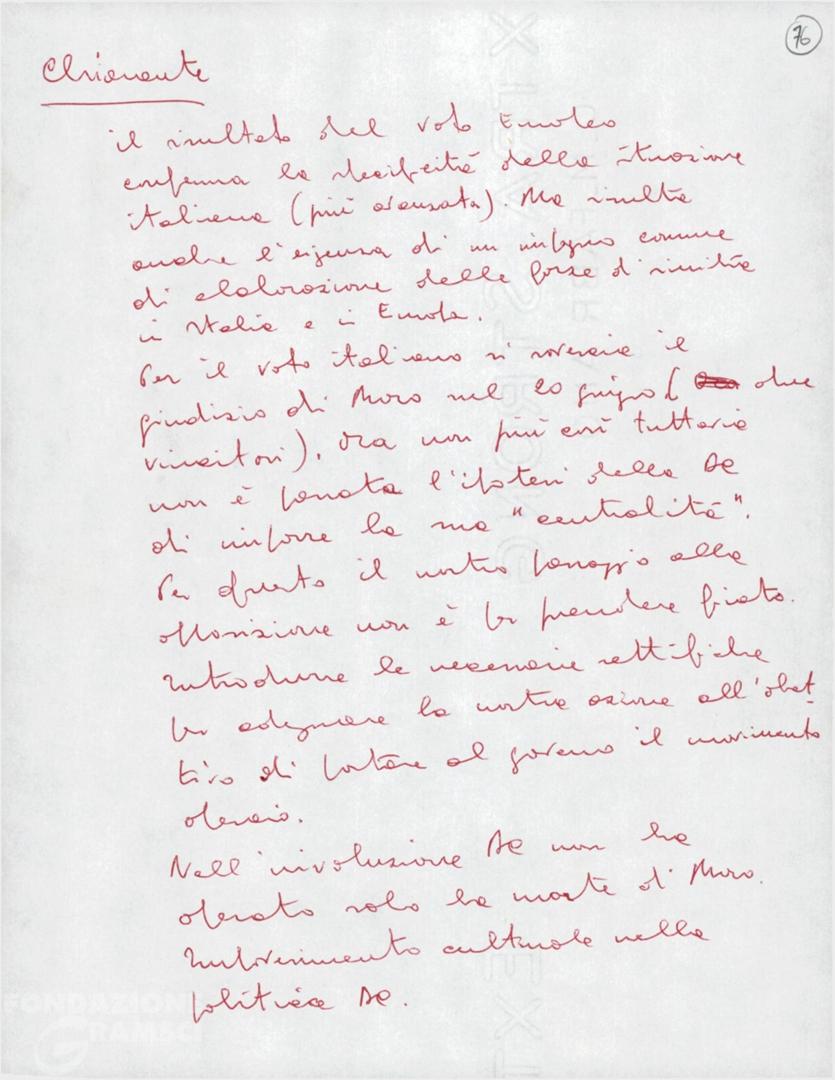 76
Chiarante
il risultato del voto Europeo
conferma la specificità della situazione
italiana (più avanzata). Ma risulta
anche l'esigenza di un impegno comune
di elaborazione delle forze di sinistra
in Italia e in Europa.
Per il voto italiano si rovescia il
giudizio di Moro sul 20 giugno ( due
vincitori). Ora non più così tuttavia
non è passata l'ipotesi della DC
di imporre la sua "centralità".
Per questo il nostro passaggio alla
opposizione non è per prendere fiato.
Introdurre le necessarie rettifiche
per adeguare la nostra azione all'obiet-
tivo di portare al governo il movimento
operaio.
Nell'involuzione DC non ha
operato solo la morte di Moro.
Impoverimento culturale nella
politica DC.
FONDAZIONE
GRAMSCI